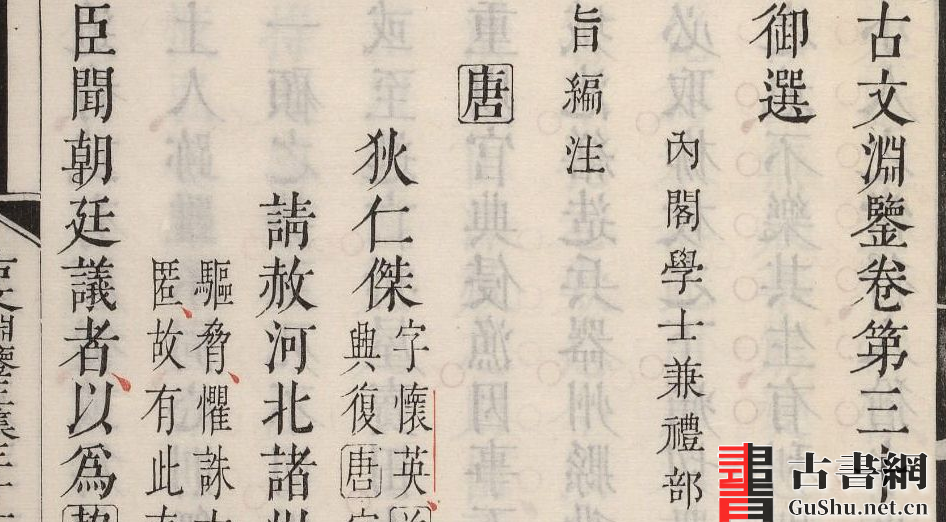 古文淵鑒卷第三十
御選
內閣學士兼禮部
旨編注
唐
狄仁傑
字懷英
興復唐
請赦河北諸州
驅脅懼誅
匿故有此
臣聞朝廷議者以爲
古書網
GuShu.net.cn